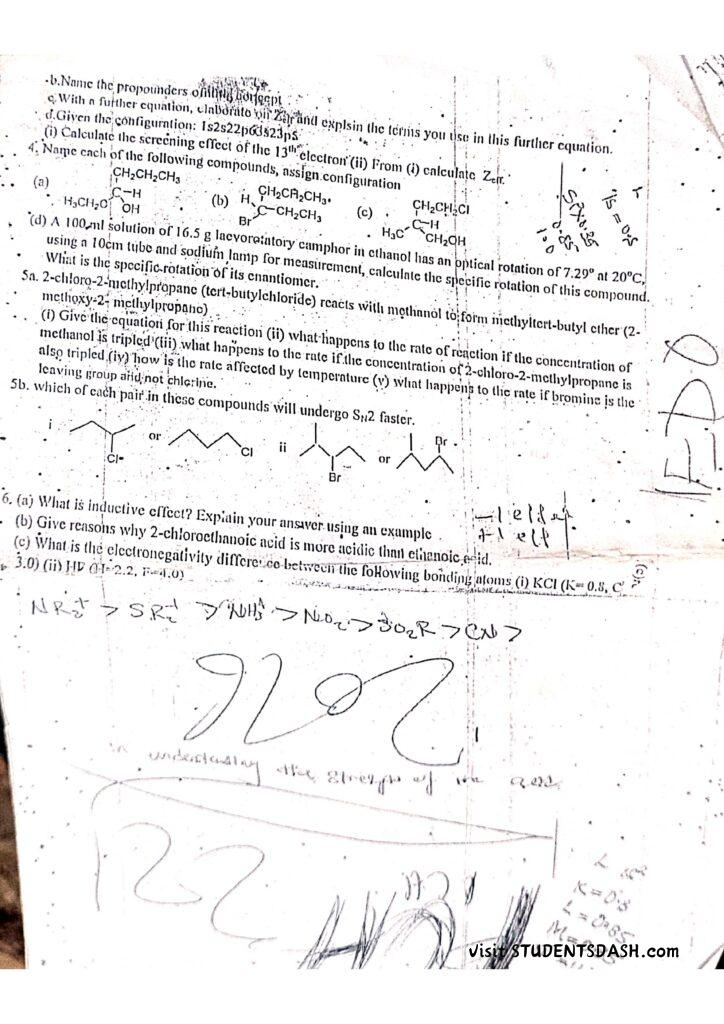 b.Name the propounders of this concept
c.With a further equation, elaborate on Zeff and explsin the terms you use in this further equation.
d.Given the configuration: 1s2s22p63s23p5
(i) Calculate the screening effect of the 13th electron (ii) From (i) calculate Zeff.
4. Name each of the following compounds, assign configuration
(a)
CH2CH2CH3
C-H
H3CH2C OH
(b)
CH2CH2CH3
H
C-CH2CH3
Br
(c)
CH2CH2Cl
C-H
H3C CH2OH
(d) A 100 ml solution of 16.5 g laevorotatory camphor in ethanol has an optical rotation of 7.29° at 20°C,
using a 10cm tube and sodium lamp for measurement, calculate the specific rotation of this compound.
What is the specific rotation of its enantiomer.
5a. 2-chloro-2-methylpropane (tert-butylchloride) reacts with methanol to form methyltert-butyl ether (2-
methoxy-2- methylpropane)
(i) Give the equation for this reaction (ii) what happens to the rate of reaction if the concentration of
methanol is tripled (iii) what happens to the rate if the concentration of 2-chloro-2-methylpropane is
also tripled (iv) how is the rate affected by temperature (v) what happens to the rate if bromine is the
leaving group and not chlorine.
5b. which of each pair in these compounds will undergo SN2 faster.
i
Cl
or
Cl
ii
Br
or
Br
6. (a) What is inductive effect? Explain your answer using an example
(b) Give reasons why 2-chloroethanoic acid is more acidic than ethanoic acid.
(c) What is the electronegativity difference between the following bonding atoms (i) KCl (K= 0.8, Cl
3.0) (ii) HF (H=2.2, F=4.0)
-I effect
+I eff
NR3+ > SR2+ > NH3+ > NO2 > SO2R > CN >
understanding the strength of
K=0.8
L=0.85
visit STUDENTSDASH.com